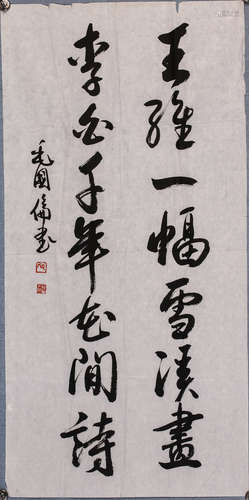 王維一幅雪溪畫
李白千年花間詩
毛國倫書